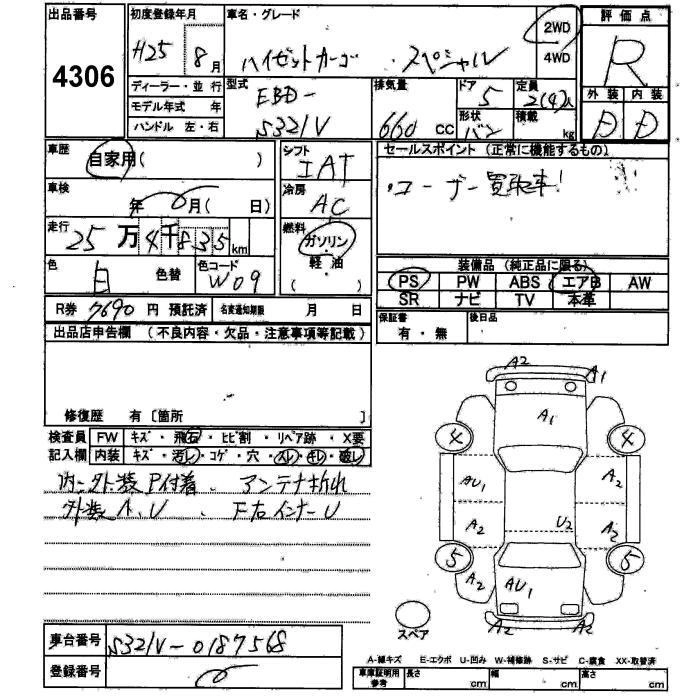 出品番号
4306
初度登録年月
H25 年 8 月
車名・グレード
ハイゼットカーゴ スペシャル
2WD
4WD
評価点
R
外装 内装
D D
ディーラー・並行
モデル年式 年
ハンドル 左・右
型式
EBD-
S321V
排気量
660 CC
ドア
5
形状
バン
定員
2(4)人
積載
kg
車歴
自家用( )
車検
年 月( 日)
走行
25万4千835km
色
白
色替
色コード
W09
シフト
IAT
冷房
AC
燃料
ガソリン
軽油
( )
セールスポイント (正常に機能するもの)
・ユーザー買取車!
装備品 (純正品に限る)
PS PW ABS エアB AW
SR ナビ TV 本革
保証書
有・無
後日品
R券 7690 円 預託済
名変通知期限 月 日
出品店申告欄 (不良内容・欠品・注意事項等記載)
修復歴 有 [箇所 ]
検査員
記入欄
FW キズ・飛石・ヒビ割・リペア跡・X要
内装 キズ・汚レ・コゲ・穴・スレ・キレ・破レ
内・外装P付着 アンテナ折れ
外装A、U 下右インナーU
車台番号
S321V-0187568
登録番号
A2
A1
A1
4
4
AU1
A2
A2
U2
A2
5
5
A2
AU1
A2
A2
A2
スペア
A-線キズ E-エクボ U-凹み W-補修跡 S-サビ C-腐食 XX-取替済
車庫証明用
参考
長さ cm 幅 cm 高さ cm